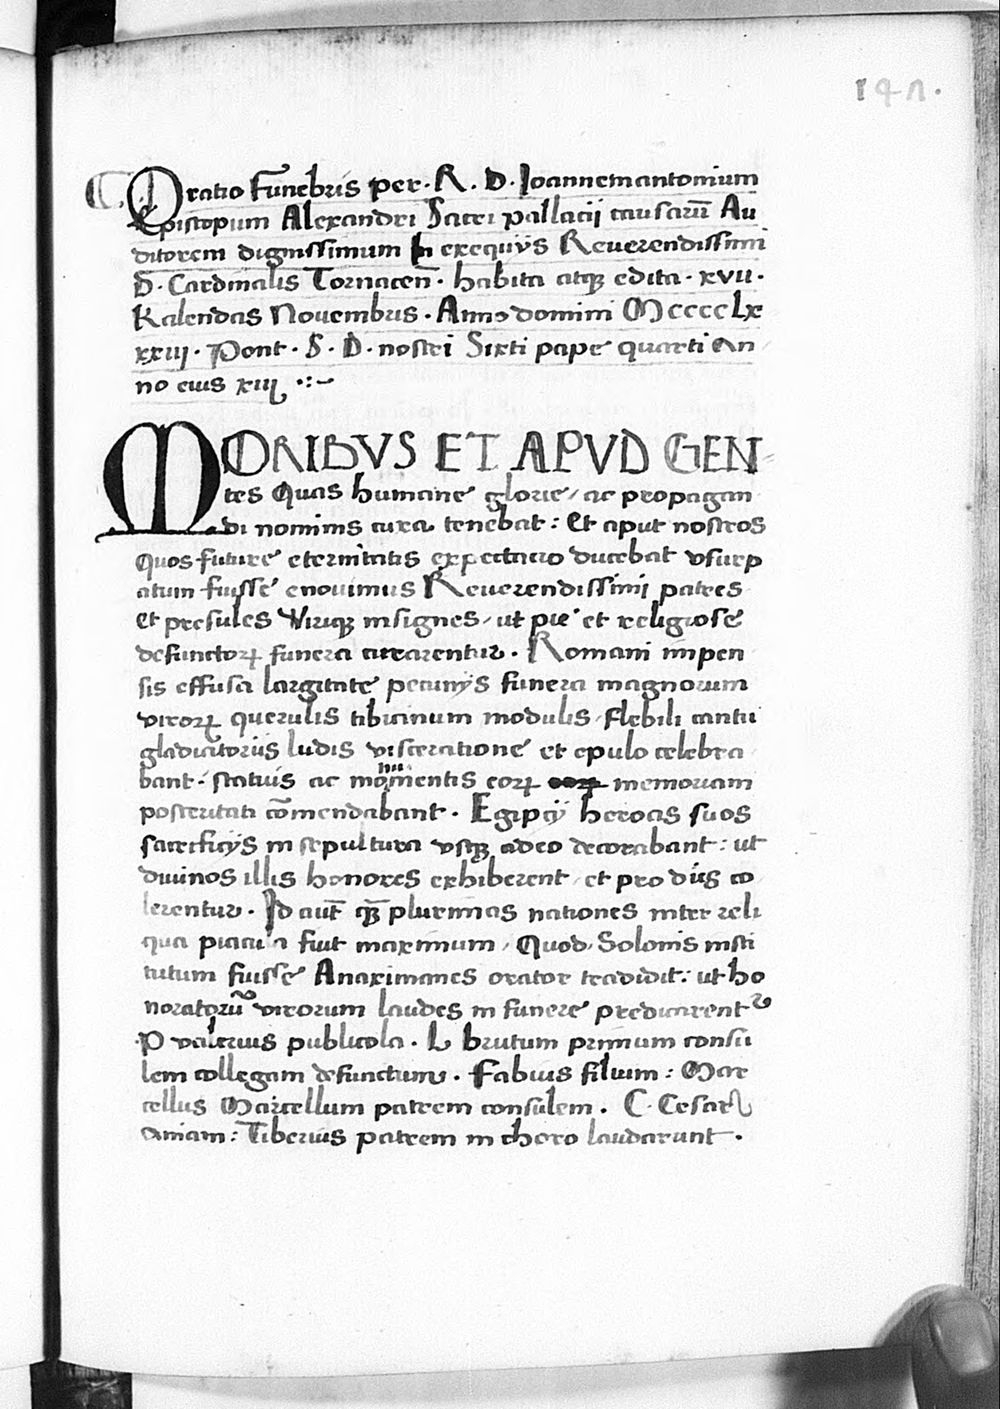 147.
Oratio Funebris per. R. D. Joannemantonium
Episcopum Alexandri Sacri pallacij causarū Au
ditorem dignissimum In exequijs Reuerendissimi
D. Cardinalis Tornaceñ. habita atqꝫ edita. xvii.
Kalendas Nouembris. Anno domini Mcccclx
xxiij. Pont. S. D. nostri Sixti pape quarti an
no eius xiij
MORIBVS ET APVD GEN
tes Quas humane glorie, ac propagan
di nominis cura tenebat: Et aput nostros
quos future eternitatis expectatio ducebat vsurp
atum fuisse enouimus Reuerendissimi patres
et presules Virique insignes, ut pie et religiose
defunctoꝝ funera curarentur. Romani impen
sis effusa largitate pecunijs funera magnorum
viroꝝ querulis tibicinum modulis, flebili cantu
gladiatoriis ludis visceratione et epulo celebra
bant. statuis ac monumentis eoꝝ memoriam
posteritati cōmendabant. Egiptij heroas suos
sacrificijs in sepultura vsqꝫ adeo decorabant: ut
diuinos illis honores exhiberent, et pro dijs co
lerentur. Id aut̄ plurimas nationes inter reli
qua piacula fiut maximum, Quod Solonis insti
tutum fuisse Anaximanes orator tradidit: ut ho
noratorū virorum laudes in funere predicarentᷣ
P valerius publicola. L brutum primum consu
lem collegam defunctum. Fabius filium: Mar
cellus Marcellum patrem consulem. C. Cesar
amiam: Tiberius patrem in choro laudarunt.